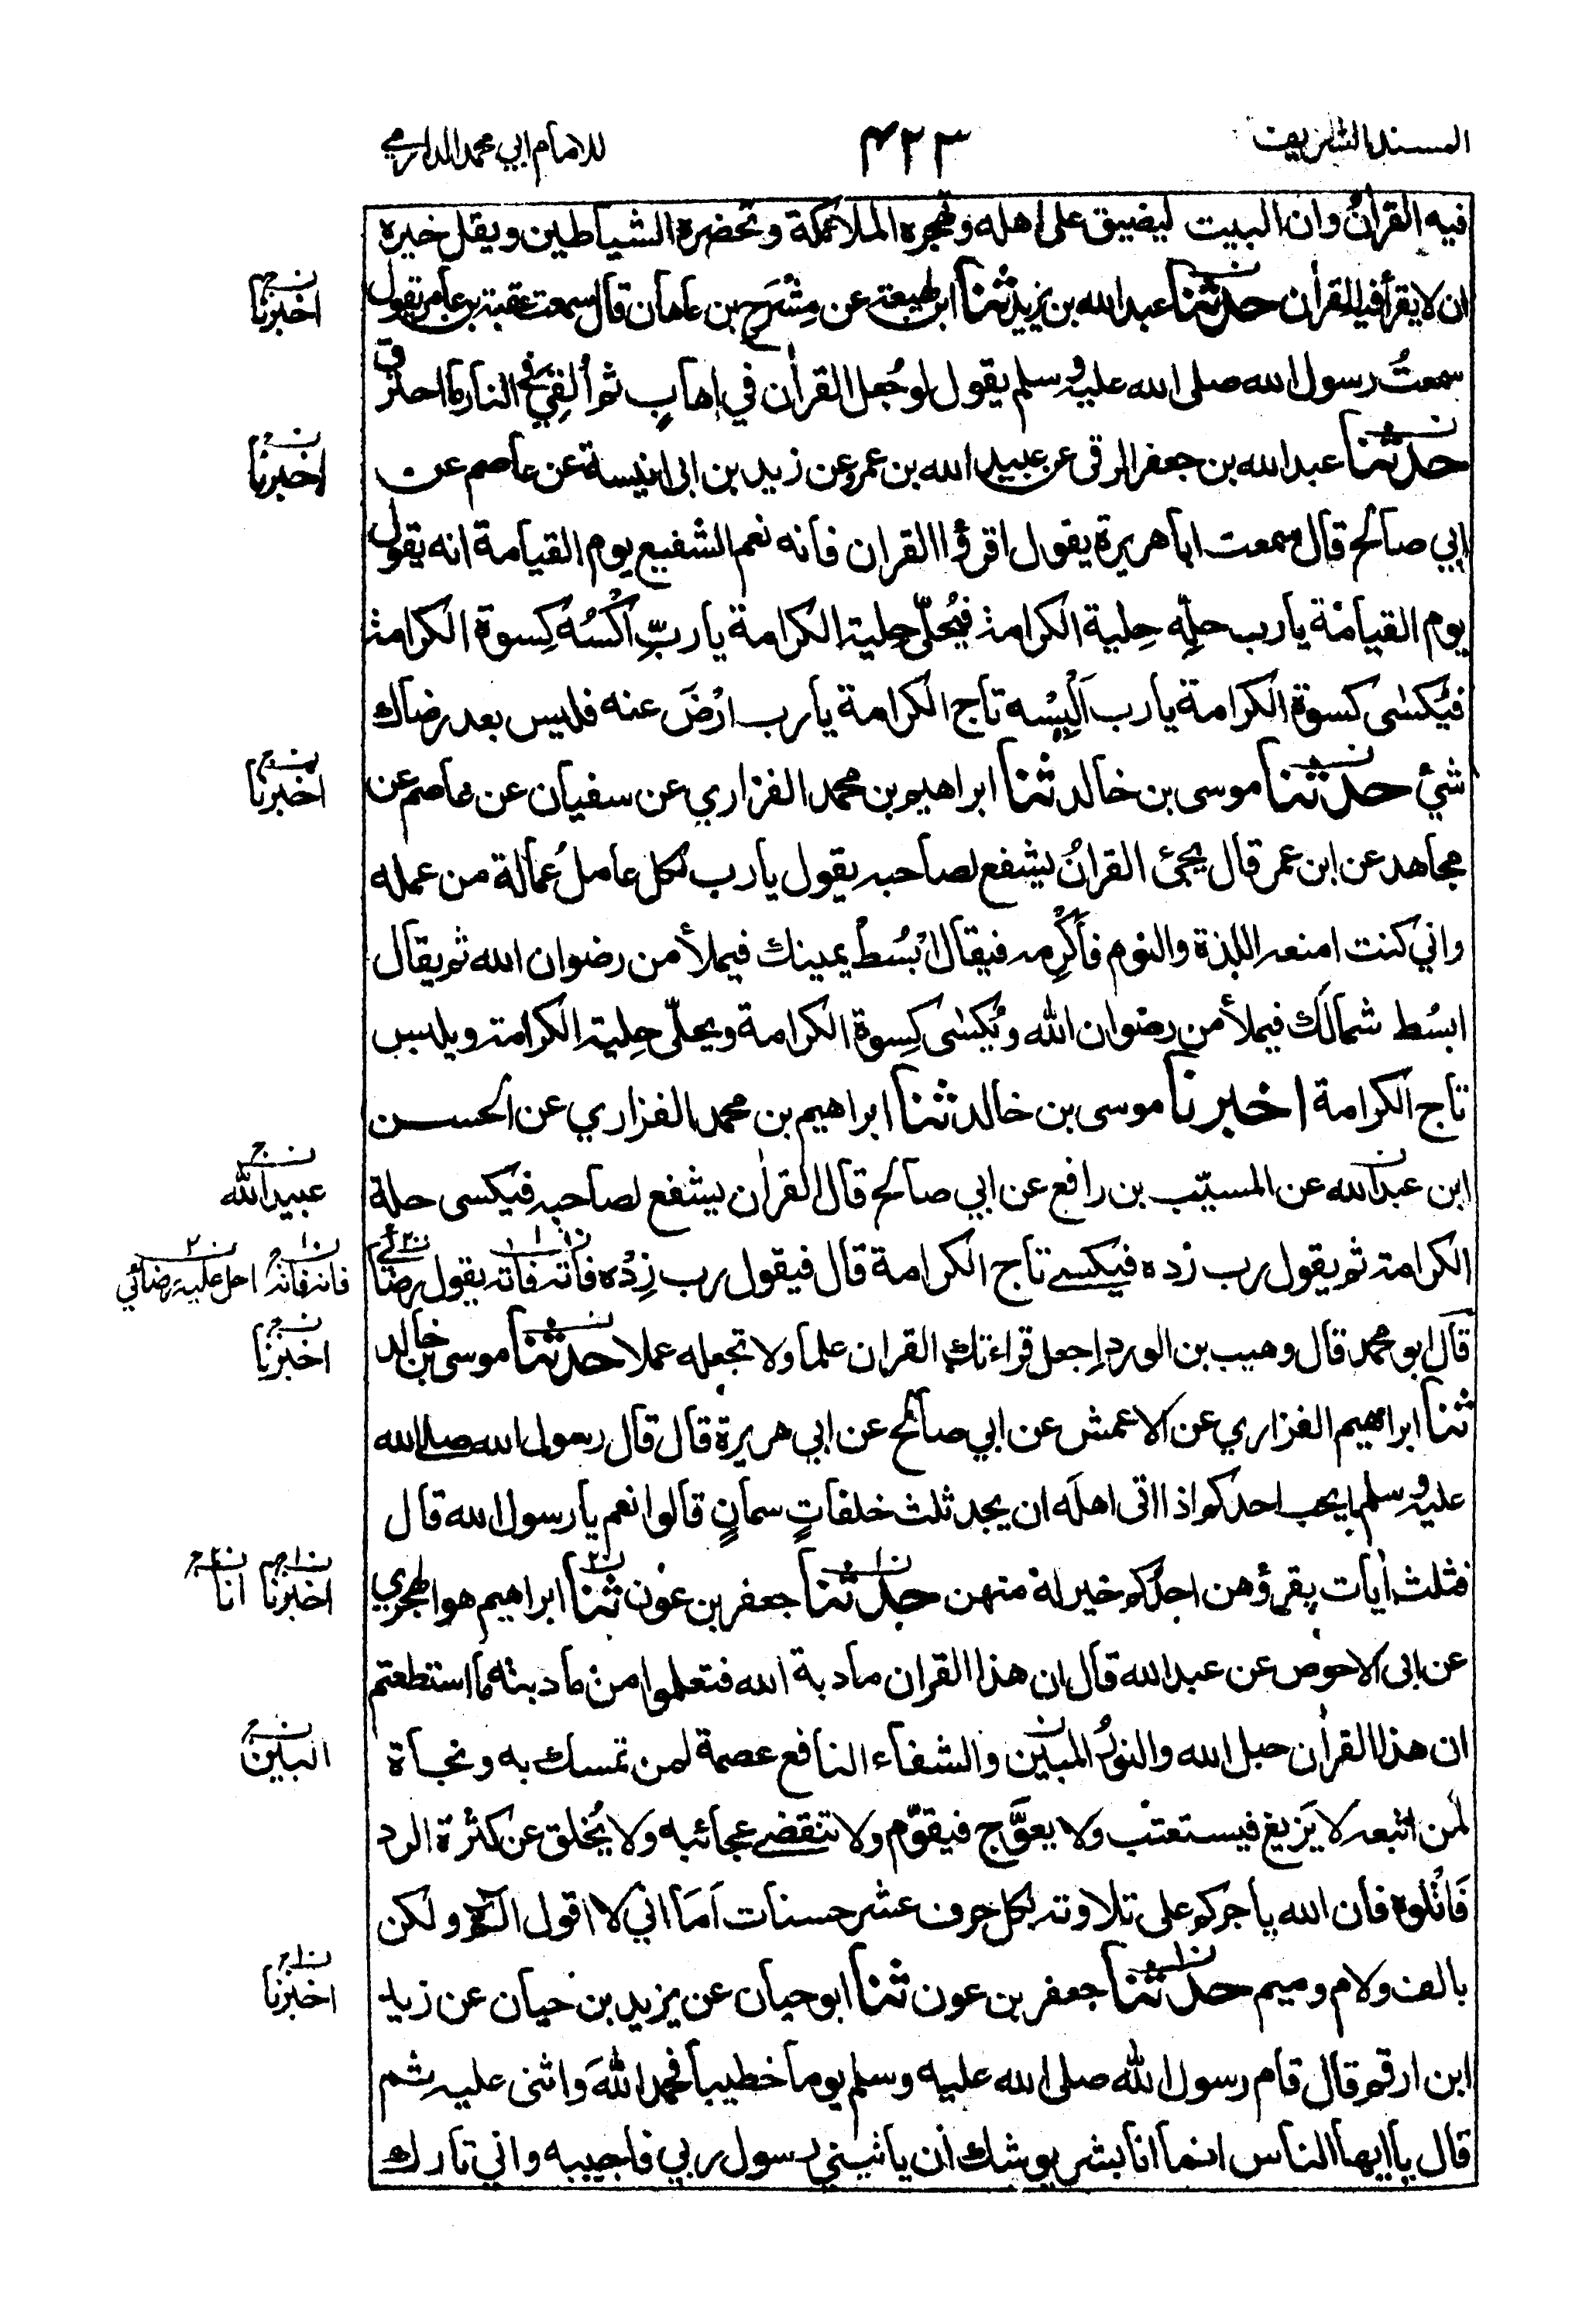 المسند الشريف ٤٢٣ للامام ابي محمد الدارمي
فيه القرانُ وان البيت ليضيق على اهله وتهجره الملائكة وتحضره الشياطين ويقل خيره
ان لا يقرأ فيه القراٰن حدثنا عبد الله بن يزيد ثنا ابن لهيعة عن مِشْرَح بن هاهان قال سمعت عقبة بن عامر يقول
اخبرنا
سمعتُ رسول الله صلى الله عليه وسلم يقول لو جُعل القراٰن في اِهابٍ ثم اُلقِيَ في النار ما احترق
حدثنا عبد الله بن جعفر الرقى عن عبيد الله بن عمرو عن زيد بن ابى انيسة عن عاصم عن
اخبرنا
ابي صالح قال سمعت ابا هريرة يقول اقرؤا القران فانه نعم الشفيع يوم القيامة انه يقول
يوم القيامة يا رب حلِّه حِلية الكرامة فيُحلّى حِلية الكرامة يا ربِّ اكْسُه كِسوة الكرامة
فيُكسٰى كسوة الكرامة يا رب اَلْبِسْه تاج الكرامة يا رب ارْضَ عنه فليس بعد رضاك
شئ حدثنا موسى بن خالد ثنا ابراهيم بن محمد الفزاري عن سفيان عن عاصم عن
اخبرنا
مجاهد عن ابن عمر قال يجئ القرانُ يشفع لصاحبه يقول يا رب لكل عامل عُمالة من عمله
واني كنت امنعه اللذة والنوم فأَكْرِمه فيقال ابْسُطْ يمينك فيملأ من رضوان الله ثم يقال
ابسُط شمالَك فيملأ من رضوان الله ويُكسٰى كِسوة الكرامة ويحلّى حِلية الكرامة ويلبس
تاج الكرامة اخبرنا موسى بن خالد ثنا ابراهيم بن محمد الفزاري عن الحسن
ابن عبد الله عن المسيّب بن رافع عن ابي صالح قال القراٰن يشفع لصاحبه فيكسى حلة
عبيد الله
الكرامة ثم يقول رب زده فيكسى تاج الكرامة قال فيقول رب زِدْه فاٰته فاٰته يقول رضائي
فانه فانه احل عليه رضائي
قال ابو محمد قال وهيب بن الورد اجعل قراءتك القران علما ولا تجعله عملا حدثنا موسى بن خالد
اخبرنا
ثنا ابراهيم الفزاري عن الاعمش عن ابي صالح عن ابي هريرة قال قال رسول الله صلى الله
عليه وسلم ايحب احدكم اذا اتى اهلَه ان يجد ثلث خلفاتٍ سمانٍ قالوا نعم يا رسول الله قال
فثلث اٰيات يقرؤهن احدكم خير لهٗ منهن حدثنا جعفر بن عَوْن ثنا ابراهيم هو الهجري
اخبرنا انا
عن ابى الاحوص عن عبد الله قال ان هذا القران مادبة الله فتعلموا من مادبته ما استطعتم
ان هذا القراٰن حبل الله والنورُ المبين والشفاء النافع عصمة لمن تمسك به ونجاة
البين
لمن اتبعه لا يَزيغ فيستعتب ولا يعوَّج فيقوّم ولا تنقضى عجائبه ولا يُخلق عن كثرة الرد
فَاتْلوه فان الله يأجركم على تلاوته بكل حرف عشر حسنات اَمَا اني لا اقول الٓمٓ ولكن
بالف ولام وميم حدثنا جعفر بن عون ثنا ابو حيان عن يزيد بن حيان عن زيد
اخبرنا
ابن ارقم قال قام رسول الله صلى الله عليه وسلم يوما خطيبا فحمد اللهَ واثنى عليه ثم
قال يا ايها الناس انما انا بشر يوشك ان ياتيني رسول ربي فاجيبه واني تارك